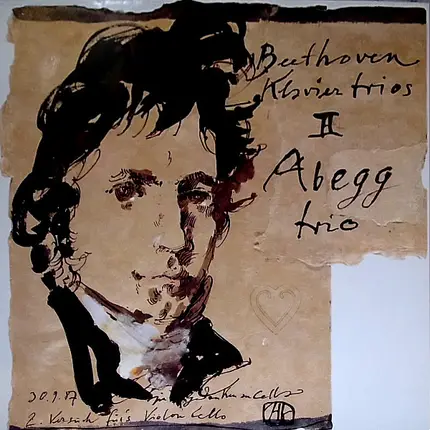 Beethoven
Klaviertrios
II
Abegg
trio
30.9.87
2. Versuch für's Violoncello